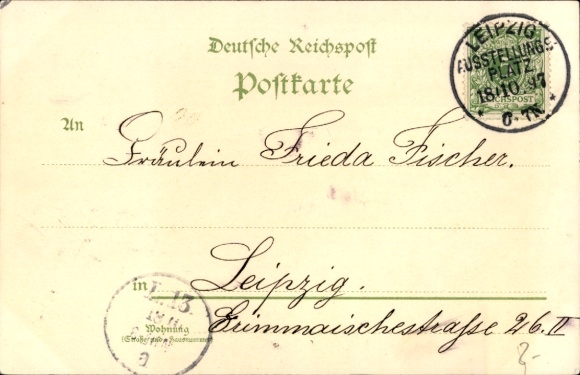 Deutsche Reichspost
Postkarte
LEIPZIG
AUSSTELLUNGS-
PLATZ
18/10 97
* 6-7N. *
REICHSPOST
An
Fräulein Frieda Fischer.
in Leipzig.
Wohnung
(Straße und Hausnummer)
Grimmaischestraße 26. II
L. 13